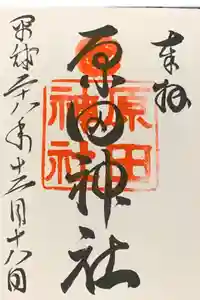 奉拝
原田神社
原田神社
平成二十八年十二月十八日